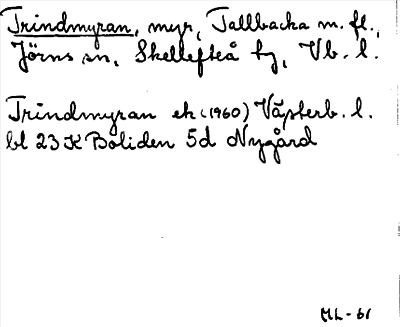 Trindmyran, myr, Tallbacka m. fl.,
Jörns sn, Skellefteå tg, Vb. l.
Trindmyran ek (1960) Västerb. l.
bl 23 K Boliden 5d Nygård
ML-61